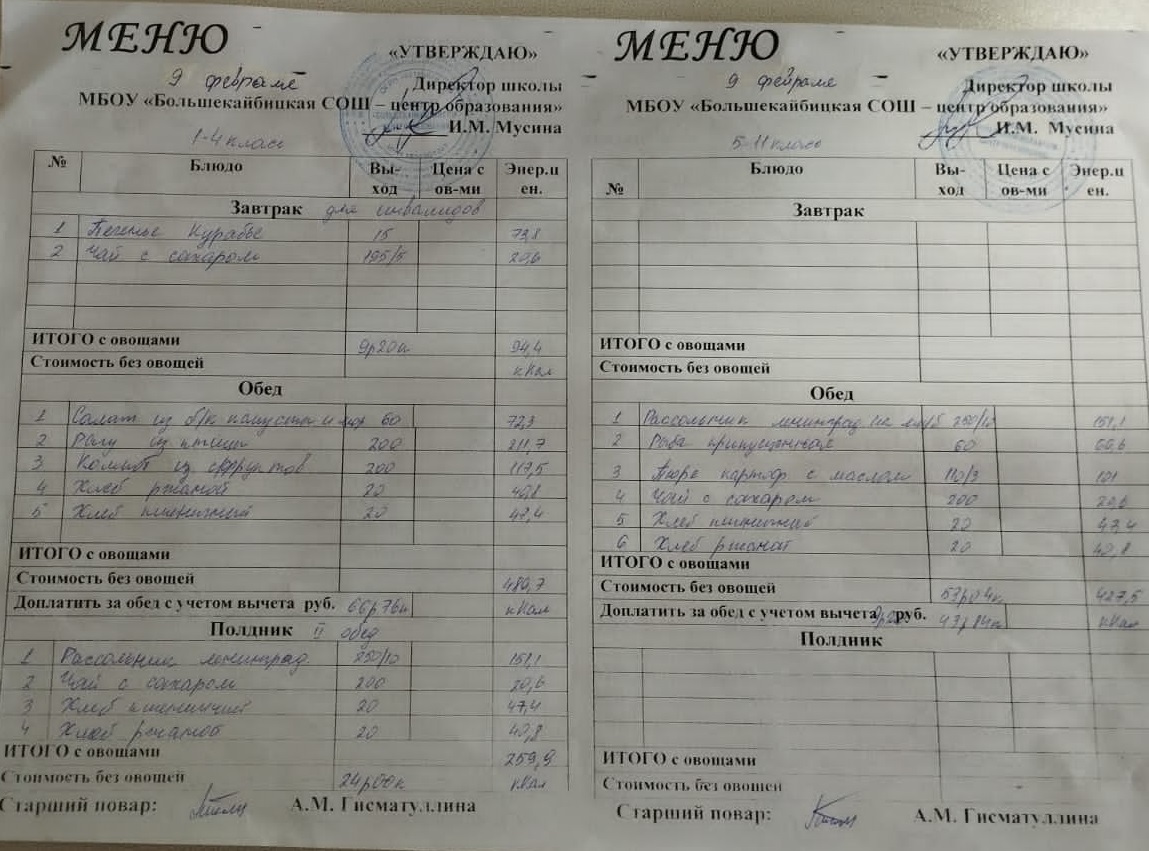 МЕНЮ
«УТВЕРЖДАЮ»
9 февраля
Директор школы
МБОУ «Большекайбицкая СОШ – центр образования»
И.М. Мусина
1-4 класс
№ Блюдо Вы-ход Цена с ов-ми Энер.ц ен.
Завтрак для инвалидов
1 Печенье Курабье 15 73,8
2 Чай с сахаром 195/5 20,6
ИТОГО с овощами 9р20к 94,4
Стоимость без овощей кКал
Обед
1 Салат из б/к капусты и мор 60 72,3
2 Рагу из птицы 200 211,7
3 Компот из с/фруктов 200 117,5
4 Хлеб ржаной 20 40,8
5 Хлеб пшеничный 20 47,4
ИТОГО с овощами
Стоимость без овощей 489,7
Доплатить за обед с учетом вычета руб. 66р76к кКал
Полдник II обед
1 Рассольник ленинград. 250/10 151,1
2 Чай с сахаром 200 20,6
3 Хлеб пшеничный 20 47,4
4 Хлеб ржаной 20 40,8
ИТОГО с овощами 259,9
Стоимость без овощей 24р00к кКал
Старший повар: А.М. Гисматуллина
МЕНЮ
«УТВЕРЖДАЮ»
9 февраля
Директор школы
МБОУ «Большекайбицкая СОШ – центр образования»
И.М. Мусина
5-11 класс
№ Блюдо Вы-ход Цена с ов-ми Энер.ц ен.
Завтрак
ИТОГО с овощами
Стоимость без овощей
Обед
1 Рассольник ленинград на 250/10 151,1
2 Рыба припущенная 60 66,6
3 Пюре картоф. с маслом 110/3 101
4 Чай с сахаром 200 20,6
5 Хлеб пшеничный 20 47,4
6 Хлеб ржаной 20 40,8
ИТОГО с овощами
Стоимость без овощей 53р04к 427,5
Доплатить за обед с учетом вычета руб. 43р84к кКал
Полдник
ИТОГО с овощами
Стоимость без овощей
Старший повар: А.М. Гисматуллина